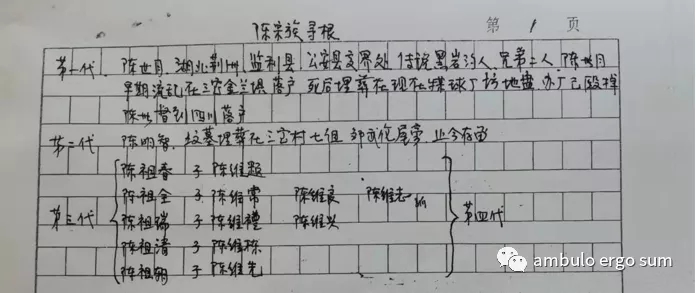 陈宗族寻根
第 1 页
第一代、陈世月、湖北荆州 监利县、公安县交界处 传说黑岩沟人、兄弟二人 陈世月
早期流乱在三官金兰堤落户 死后埋葬在现在煤球厂访地盘、办厂已毁掉
陈世 到四川落户
第二代 陈明智、坟墓埋葬在三官村七组 屋旁 止今存留
陈祖春 子 陈维超
陈祖全 子 陈维常 陈维良 陈维志
第三代 陈祖瑞 子 陈维禮 陈维兴 第四代
陈祖清 子 陈维栋
陈祖翔 子 陈维先
ambulo ergo sum